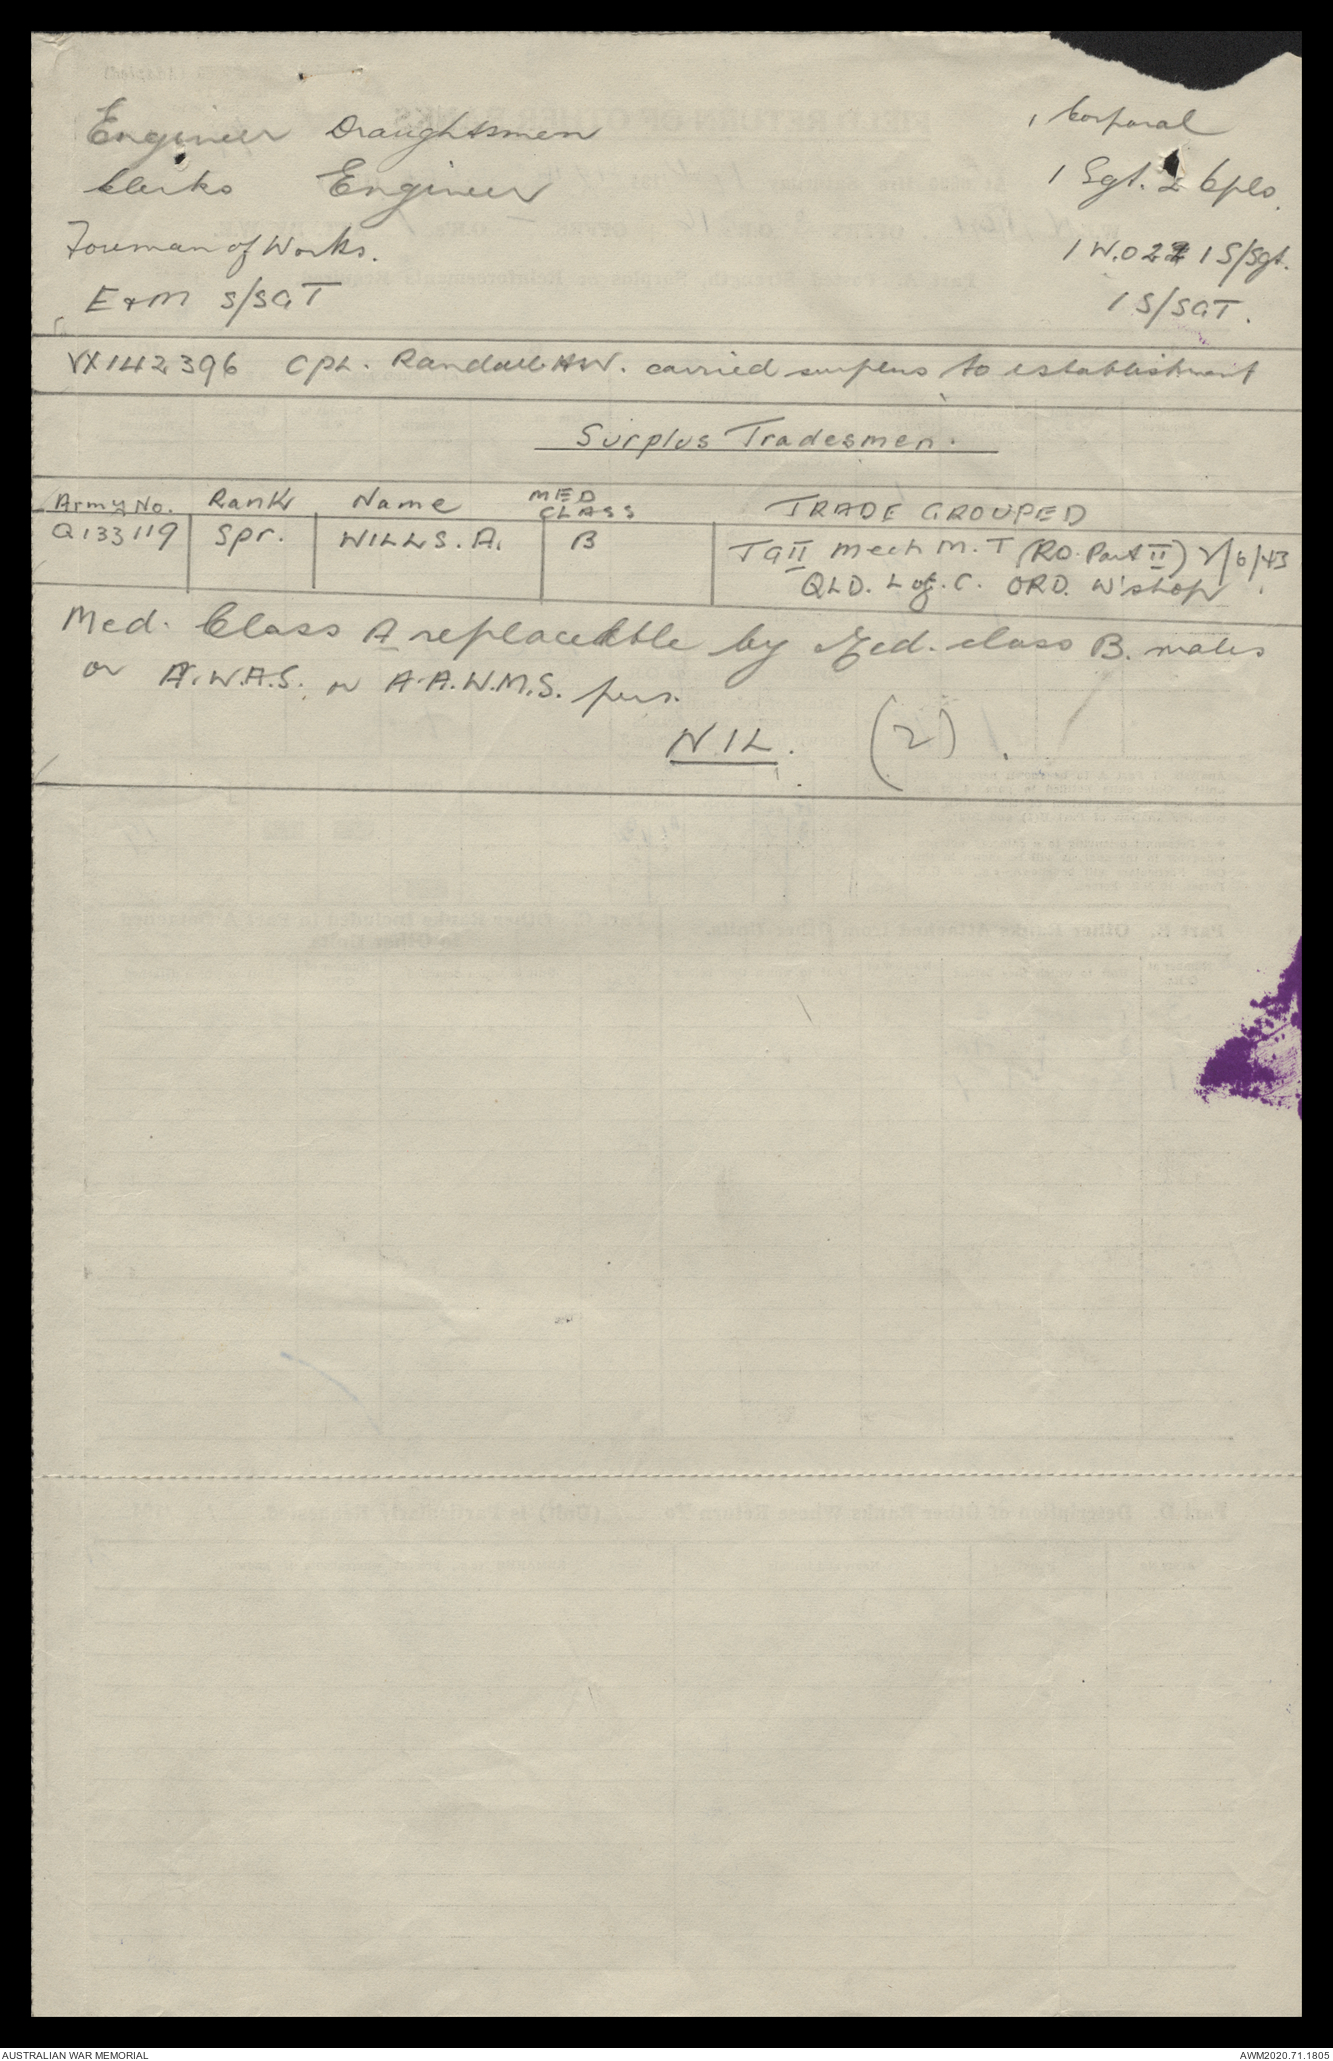 Engineer Draughtsmen 1 Corporal
Clerks Engineer 1 Sgt. 2 Cpls.
Foreman of Works. 1 W.O 2 1 S/Sgt.
E & M S/SGT 1 S/SGT.
VX142396 CPL. Randall A.W. carried surplus to establishment
Surplus Tradesmen.
Army No. Rank Name MED CLASS TRADE GROUPED
Q133119 Spr. WILLS. A. B TG II Mech M.T (RO. Part II) 2/6/43
QLD. L of. C. ORD. W'shop
Med. Class A replaceable by Med. class B. males
or A.W.A.S. or A.A.W.M.S. pers.
NIL. (2).
AUSTRALIAN WAR MEMORIAL AWM2020.71.1805